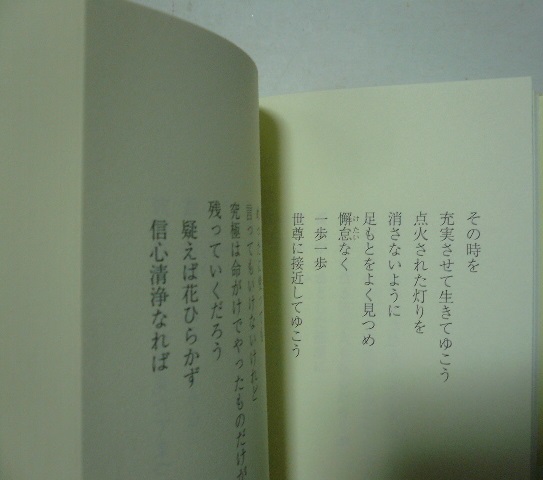 その時を
充実させて生きてゆこう
点火された灯りを
消さないように
足もとをよく見つめ
けたい
懈怠なく
一歩一歩
世尊に接近してゆこう
言ってもいけないけれど
究極は命がけでやったものだけが
残っていくだろう
疑えば花ひらかず
信心清浄なれば